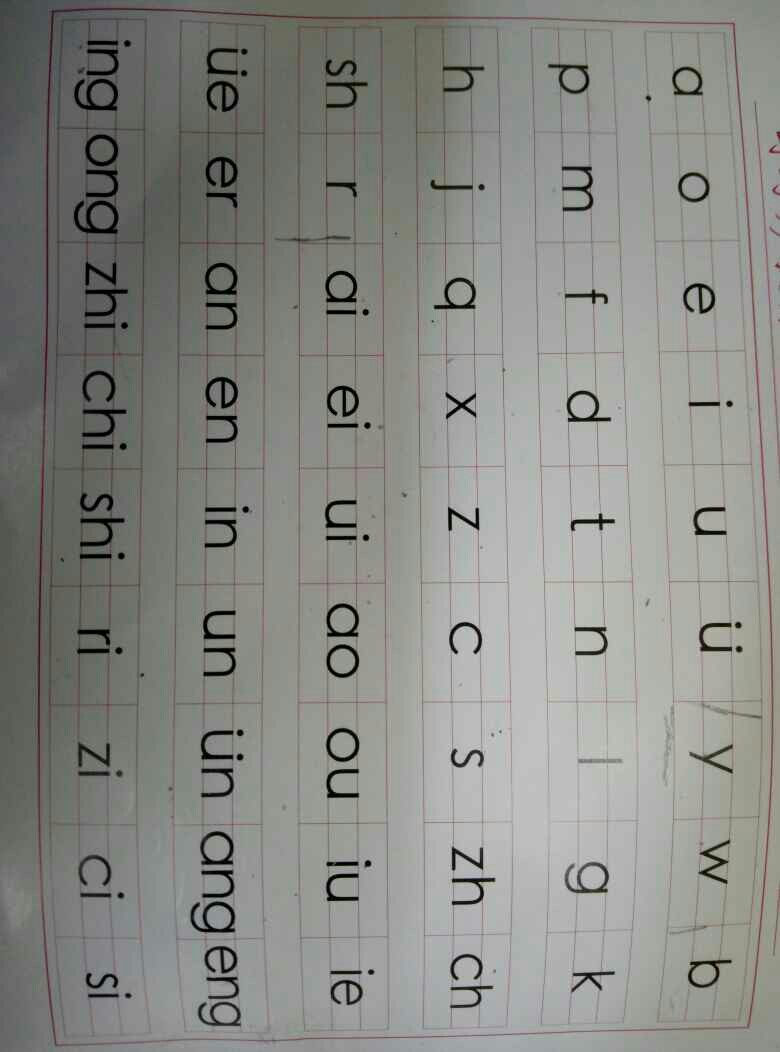 a o e i u ü y w b
p m f d t n l g k
h j q x z c s zh ch
sh r ai ei ui ao ou iu ie
üe er an en in un ün ang eng
ing ong zhi chi shi ri zi ci si